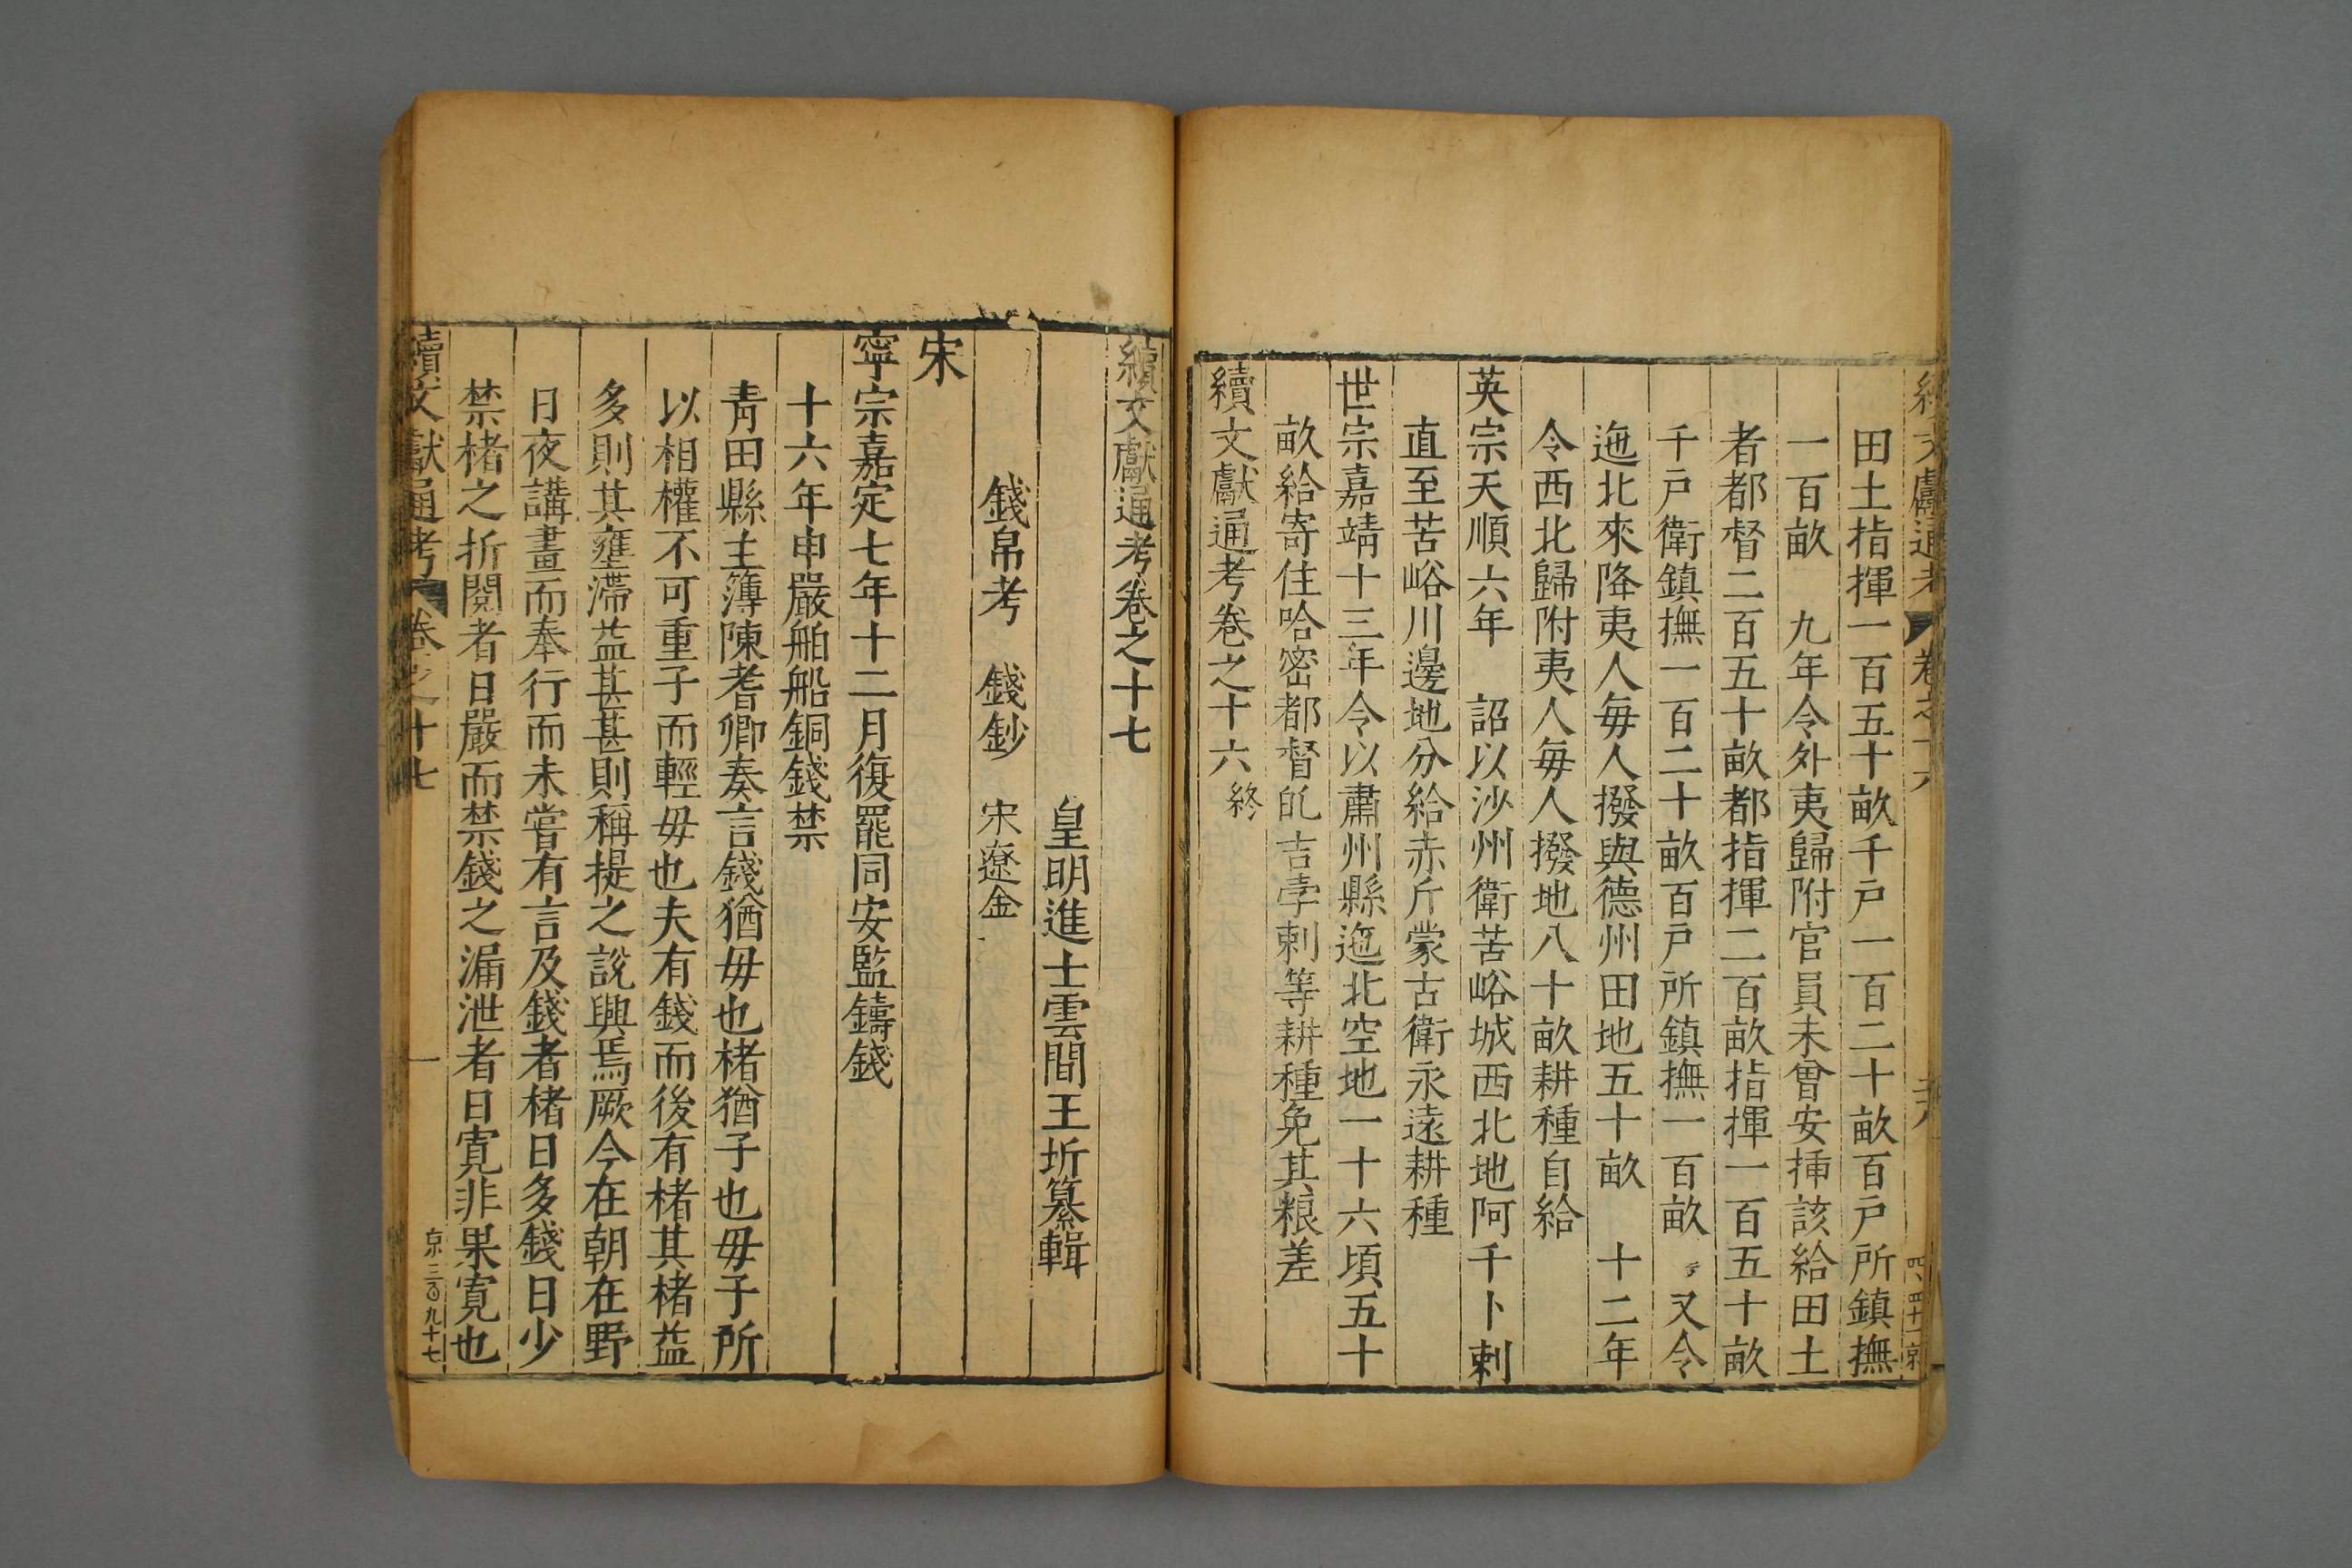 續文獻通考 卷之十六
田土指揮一百五十畝千戸一百二十畝百戸所鎮撫
一百畝 九年令外夷歸附官員未曾安揷該給田土
者都督二百五十畝都指揮二百畝指揮一百五十畝
千戸衛鎮撫一百二十畝百戸所鎮撫一百畝 又令
迤北來降夷人每人撥與德州田地五十畝 十二年
令西北歸附夷人每人撥地八十畝耕種自給
英宗天順六年 詔以沙州衛苦峪城西北地阿千卜剌
直至苦峪川邊地分給赤斤蒙古衛永遠耕種
世宗嘉靖十三年令以肅州縣迤北空地一十六頃五十
畝給寄住哈密都督癿吉孛剌等耕種免其粮差
續文獻通考卷之十六終
續文獻通考卷之十七
皇明進士雲間王圻纂輯
錢帛考 錢鈔 宋遼金
宋
寧宗嘉定七年十二月復罷同安監鑄錢
十六年申嚴舶船銅錢禁
青田縣主簿陳耆卿奏言錢猶毋也楮猶子也毋子所
以相權不可重子而輕毋也夫有錢而後有楮其楮益
多則其壅滯益甚甚則稱提之說與焉厥今在朝在野
日夜講畫而奉行而未嘗有言及錢者楮日多錢日少
禁楮之折閱者日嚴而禁錢之漏泄者日寛非果寛也
續文獻通考 卷之十七 一